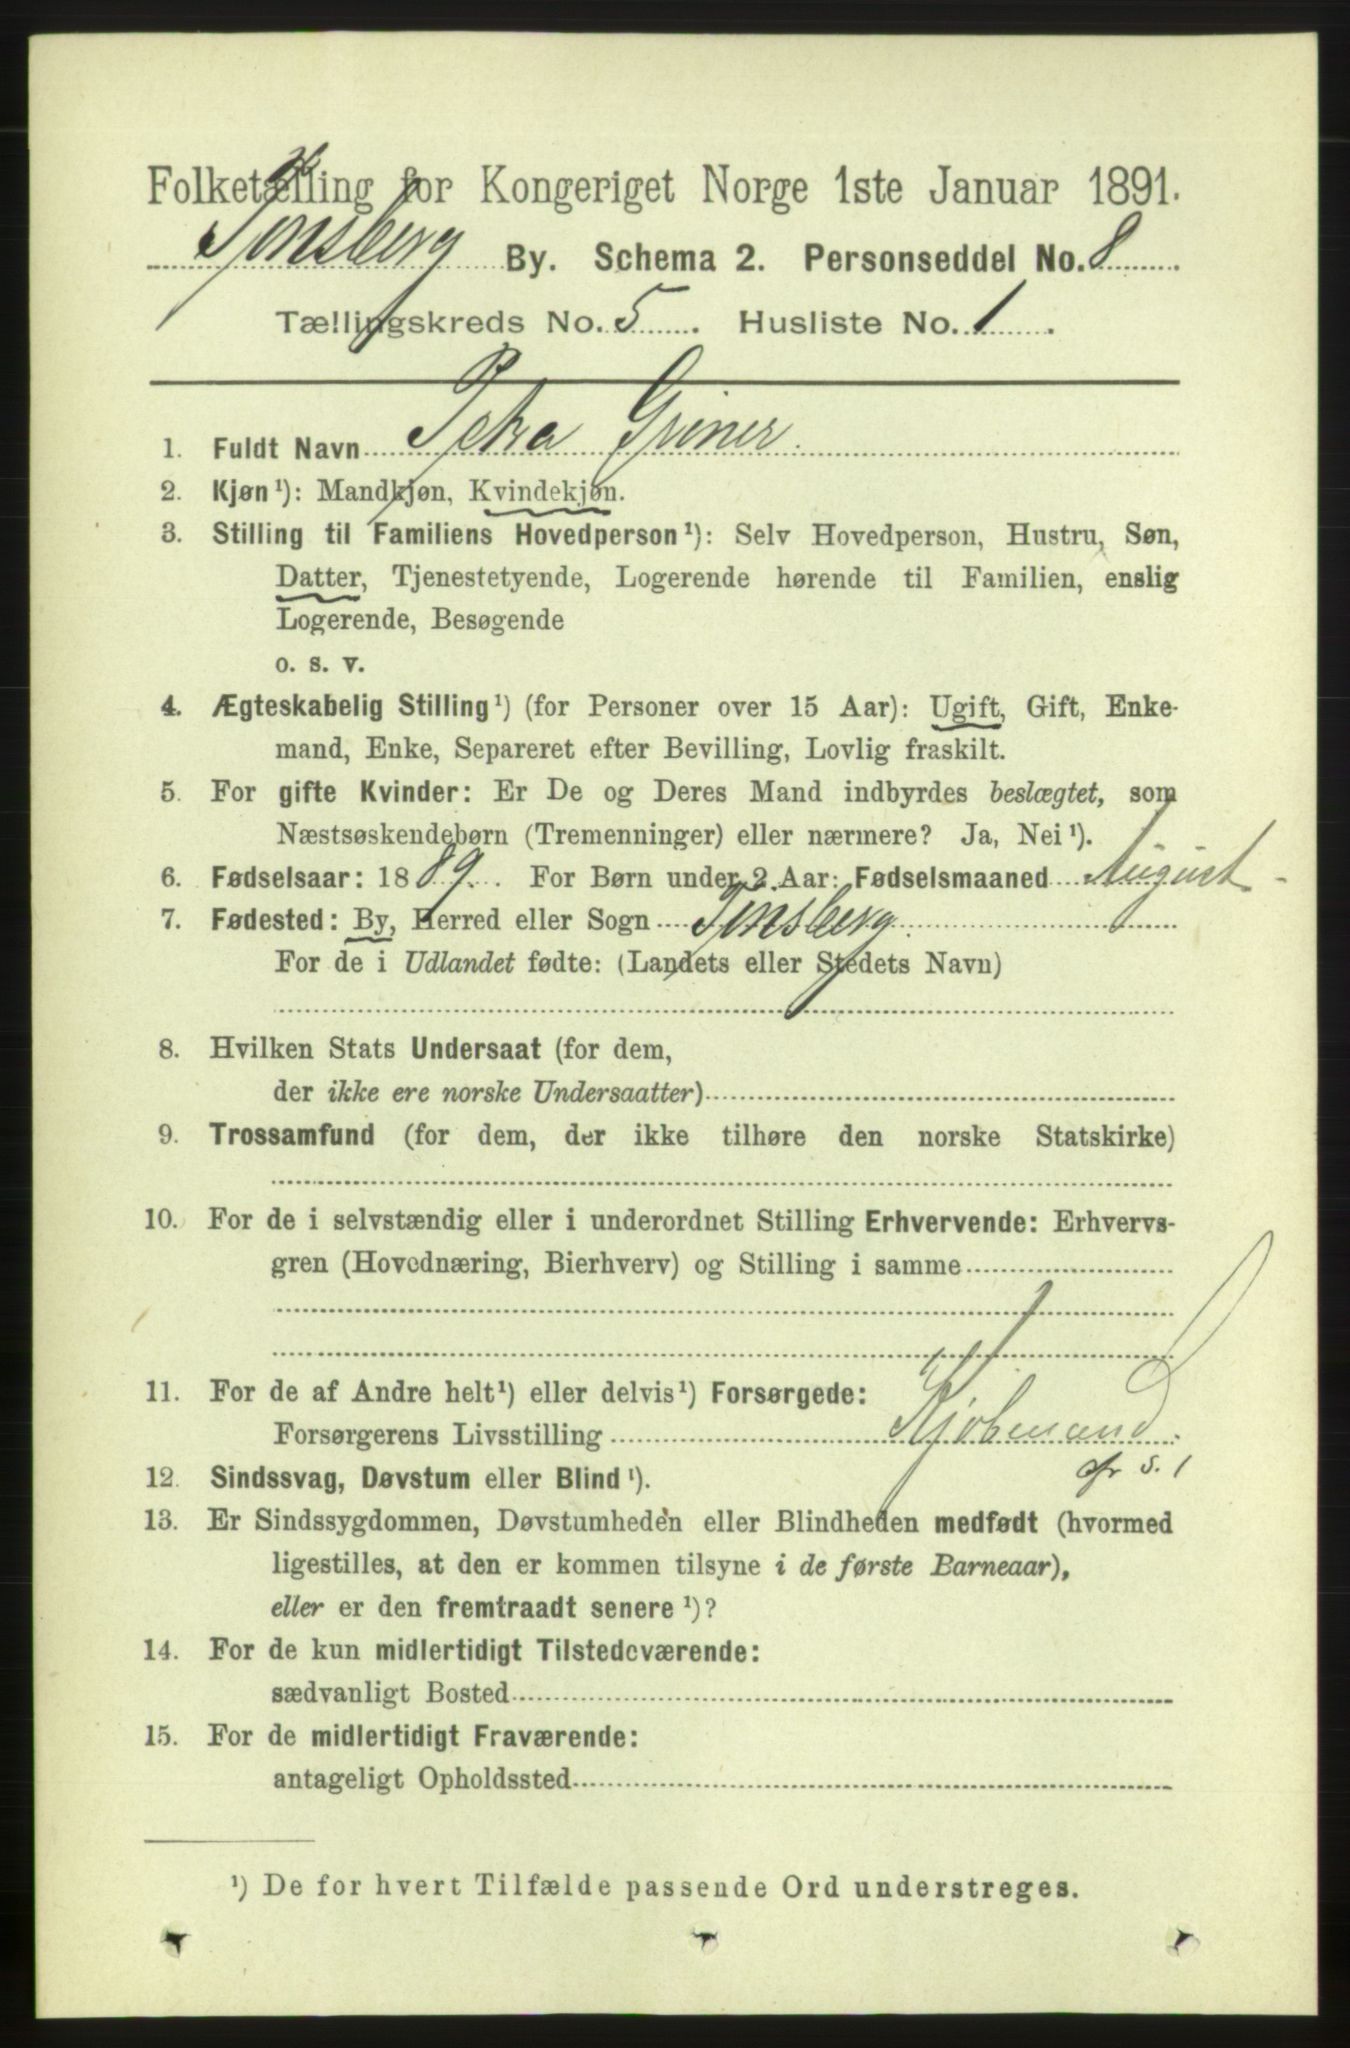 Folketælling for Kongeriget Norge 1ste Januar 1891.
Tønsberg By. Schema 2. Personseddel No. 8
Tællingskreds No. 5. Husliste No. 1.
1. Fuldt Navn Petra Griner.
2. Kjøn¹): Mandkjøn, Kvindekjøn.
3. Stilling til Familiens Hovedperson¹): Selv Hovedperson, Hustru, Søn,
Datter, Tjenestetyende, Logerende hørende til Familien, enslig
Logerende, Besøgende
o. s. v.
4. Ægteskabelig Stilling¹) (for Personer over 15 Aar): Ugift, Gift, Enke-
mand, Enke, Separeret efter Bevilling, Lovlig fraskilt.
5. For gifte Kvinder: Er De og Deres Mand indbyrdes beslægtet, som
Næstsøskendebørn (Tremenninger) eller nærmere? Ja, Nei¹).
6. Fødselsaar: 1889. For Børn under 2 Aar: Fødselsmaaned August
7. Fødested: By, Herred eller Sogn Tønsberg.
For de i Udlandet fødte: (Landets eller Stedets Navn)
8. Hvilken Stats Undersaat (for dem,
der ikke ere norske Undersaatter)
9. Trossamfund (for dem, der ikke tilhøre den norske Statskirke)
10. For de i selvstændig eller i underordnet Stilling Erhvervende: Erhvervs-
gren (Hovednæring, Bierhverv) og Stilling i samme
11. For de af Andre helt¹) eller delvis¹) Forsørgede:
Forsørgerens Livsstilling Kjøbmand.
cfr S. 1
12. Sindssvag, Døvstum eller Blind¹).
13. Er Sindssygdommen, Døvstumheden eller Blindheden medfødt (hvormed
ligestilles, at den er kommen tilsyne i de første Barneaar),
eller er den fremtraadt senere¹)?
14. For de kun midlertidigt Tilstedeværende:
sædvanligt Bosted
15. For de midlertidigt Fraværende:
antageligt Opholdssted
¹) De for hvert Tilfælde passende Ord understreges.